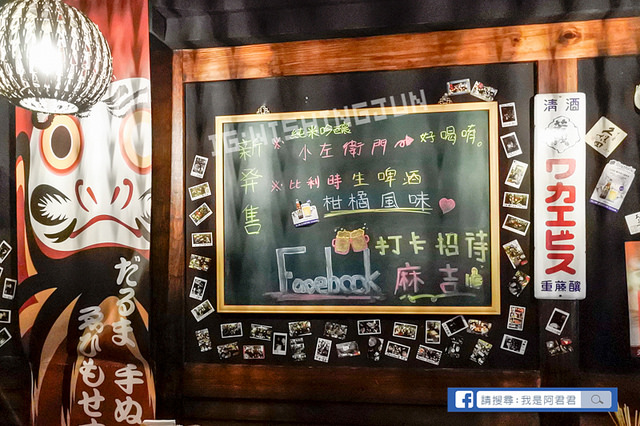 IG:WISHINGJUN
新発售
純米吟釀
※小左衛門 好喝唷。
※比利時生啤酒
柑橘風味
打卡招待
Facebook 麻吉
清酒
ワカエビス
重藤釀
だるま 手ぬ
ゑひもせ
請搜尋:我是阿君君